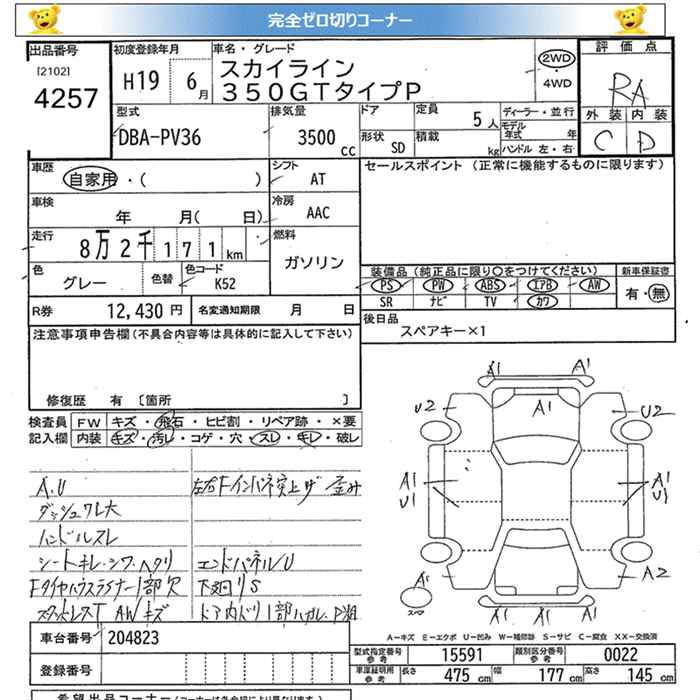 完全ゼロ切りコーナー
出品番号
[2102]
4257
初度登録年月
H19 6月
車名・グレード
スカイライン
350GTタイプP
2WD
・4WD
評価点
RA
外装 内装
C D
型式
DBA-PV36
排気量
3500 cc
ドア
形状 SD
定員 5人
積載 kg
ディーラー・並行
モデル年式 年
ハンドル 左・右
車歴
自家用・( )
シフト AT
車検
年 月( 日)
冷房 AAC
走行
8万2千171km
燃料
ガソリン
色
グレー
色替
色コード
K52
R券 12,430円
名変通知期限 月 日
セールスポイント (正常に機能するものに限ります)
装備品(純正品に限り○をつけてください)
新車保証書
PS PW ABS エアB AW
SR ナビ TV カワ
有・無
後日品
スペアキー×1
注意事項申告欄(不具合内容等は具体的に記入して下さい)
修復歴 有 〔箇所 〕
検査員記入欄
FW キズ・飛石・ヒビ割・リペア跡・×要
内装 キズ・汚レ・コゲ・穴・スレ・キレ・破レ
A,U
ダッシュワレ大
ハンドルスレ
シートキレ・シワ・ヘタリ
Fタイヤハウスライナー1部欠
スタットレスT AWキズ
左右Fインパネ突上げ 歪み
エンドパネルU
下廻りS
ドア内ドリ1部ハガレ
A1 A1
U2 A1 U2
A1 U1
A1 U1
A1 A2
スペア
A1 A1 A1
A-キズ E-エクボ U-凹み W-補修跡 S-サビ C-腐食 XX-交換済
車台番号 204823
登録番号
型式指定番号 参考 15591
類別区分番号 参考 0022
車庫証明用 参考 長さ 475 cm 幅 177 cm 高さ 145 cm